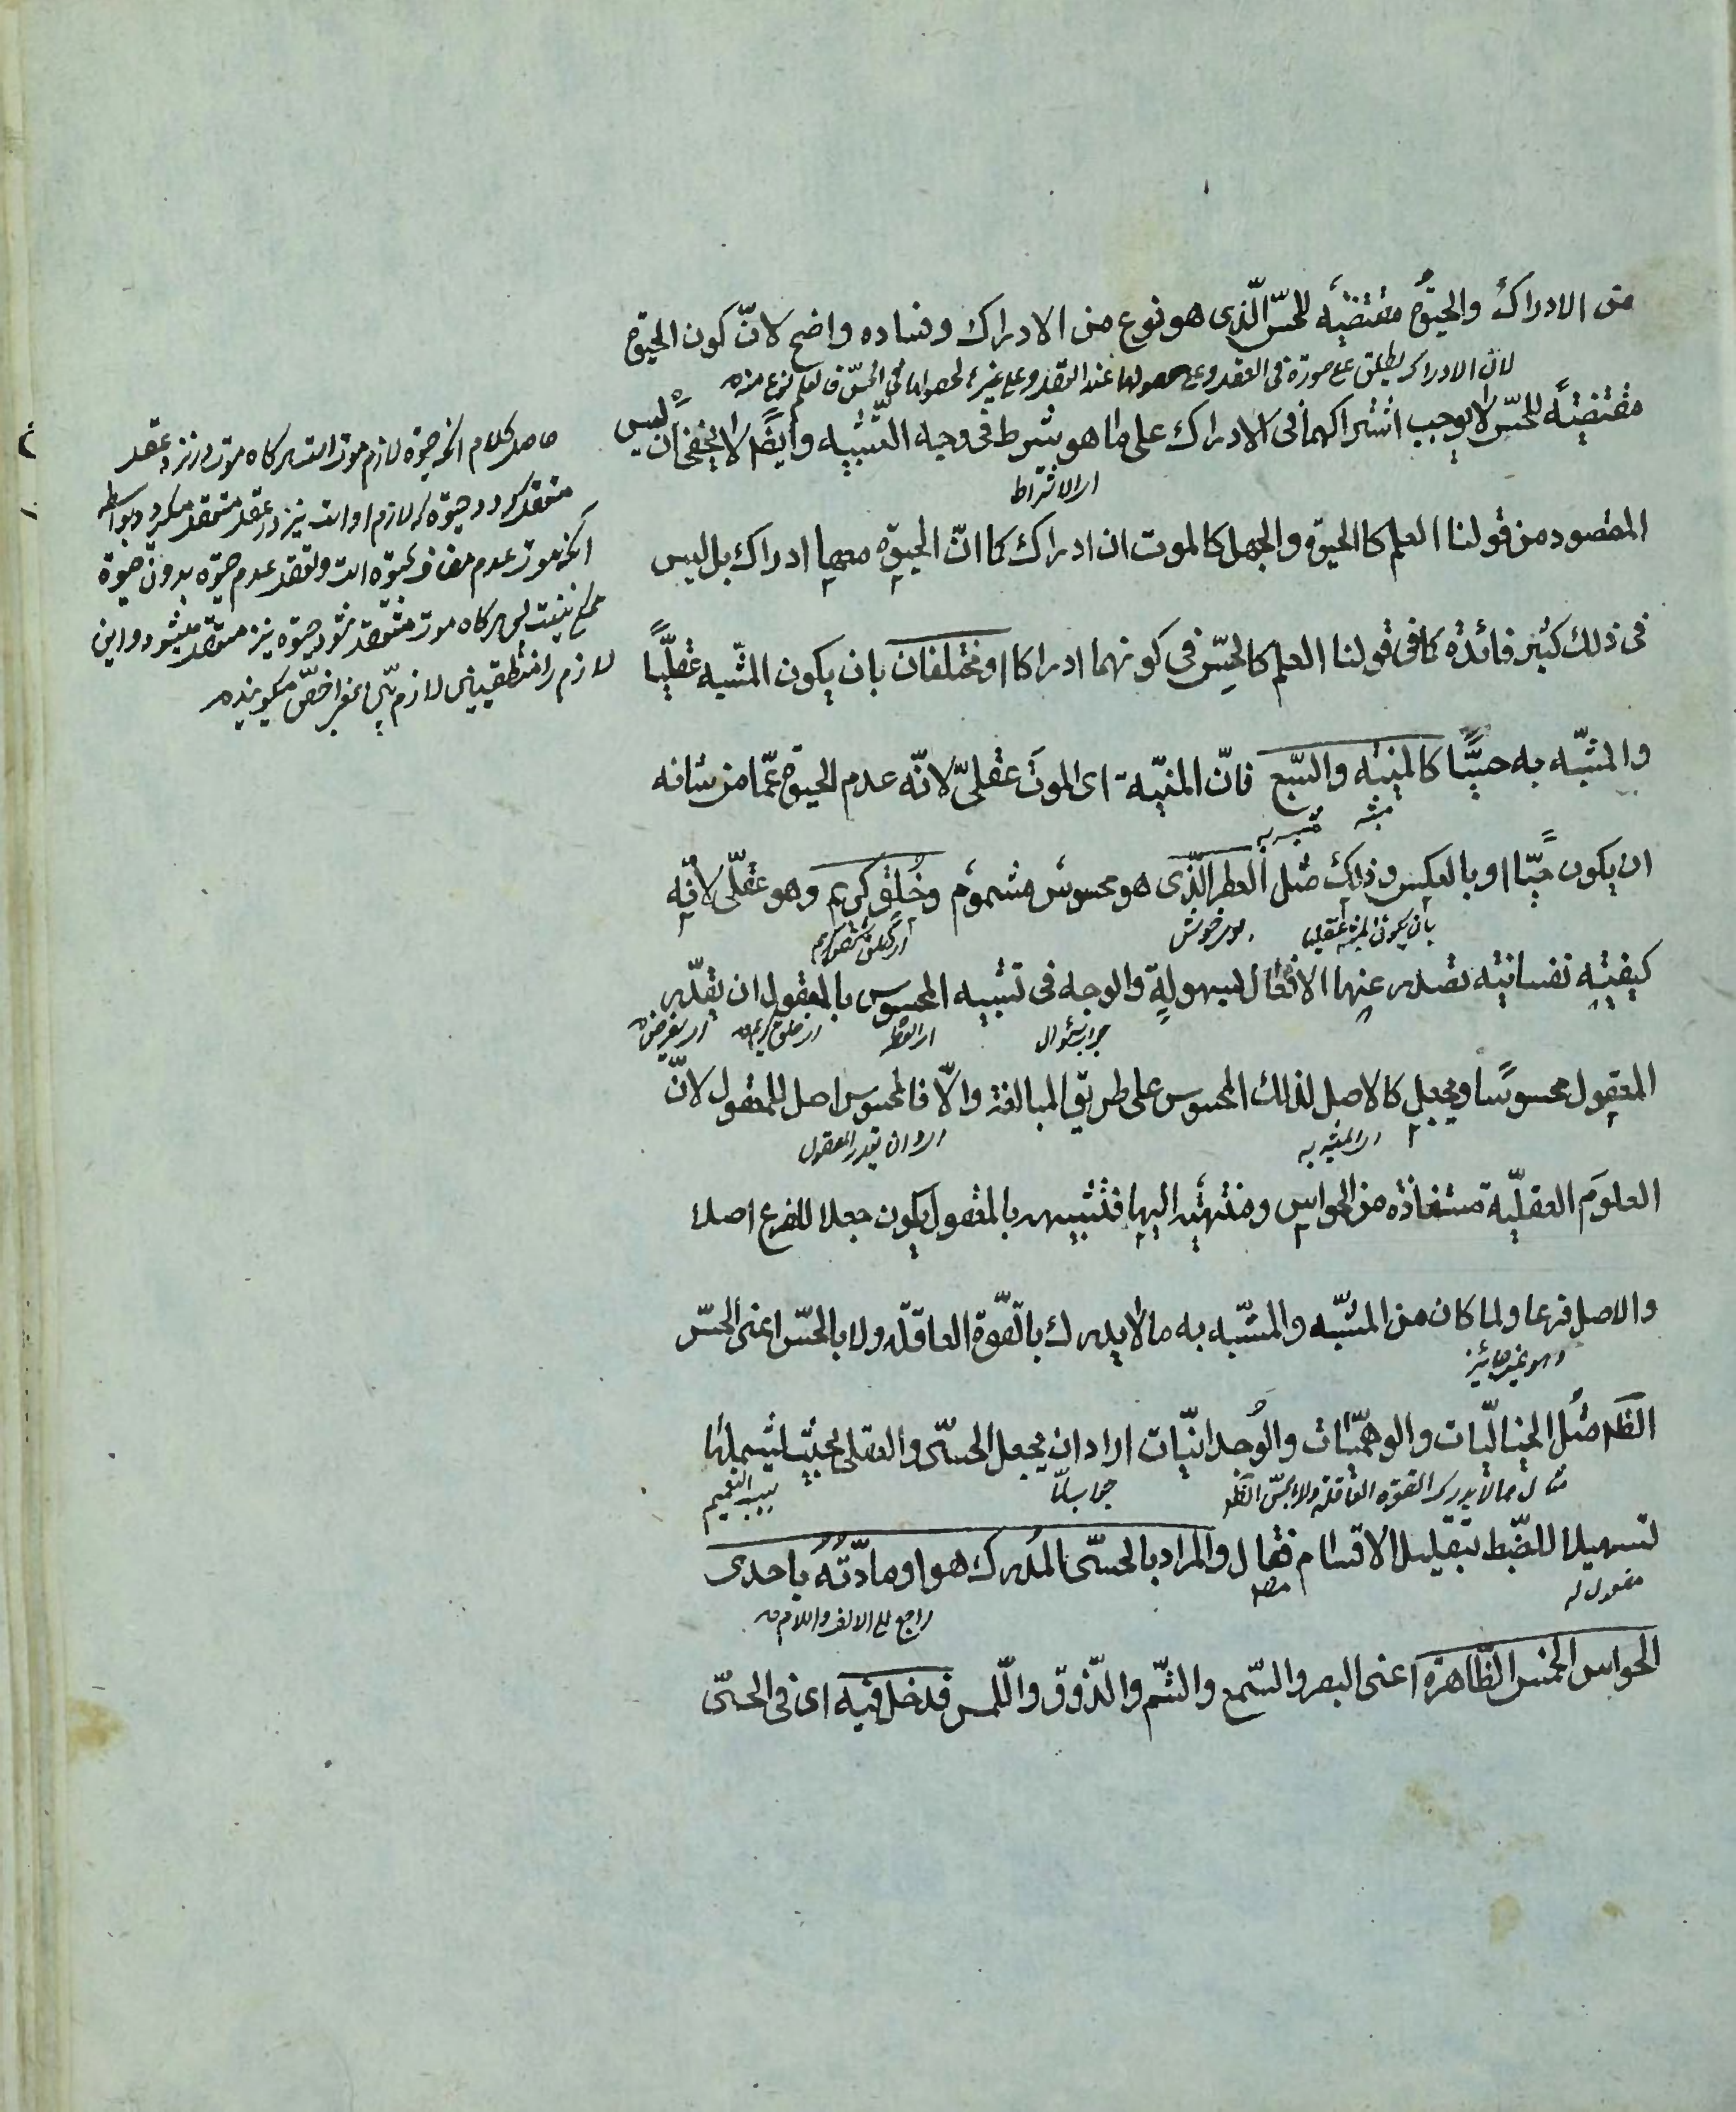 من الادراك والحيوة مقتضية للحس الذى هو نوع من الادراك وفساده واضح لانّ كون الحيوة
لان الادراك يطلق على صورة فى العقد وعلى حصولها
مقتضية للحسّ لا يوجب اشتراكهما فى الادراك على ما هو شرط فى وجه التشبيه وايضا لا يخفى ان ليس
اى الاشتراط
المقصود من قولنا العلم كالحيوة والجهل كالموت ان ادراك كما انّ الحيوة معها ادراك بل ليس
فى ذلك كثير فائدة كما فى قولنا العلم كالحسّ فى كونهما ادراكا او مختلفان بان يكون المشبه عقليّا
والمشبّه به حسيّا كالمنية والسّبع فانّ المنيّة اى الموت عقلىّ لانّه عدم الحيوة عمّا من شانه
مشبه مشبه به
ان يكون حيّا او بالعكس وذلك مثل العطر الّذى هو محسوس مشموم وخُلق كريم وهو عقلّى لانّه
بان يكون المشبه عقليا
كيفية نفسانية تصدر عنها الافعال بسهولة والوجه فى تشبيه المحسوس بالمعقول ان يقدّر
جواب سؤال
المعقول محسوسًا ويجعل كالاصل لذلك المحسوس على طريق المبالغة والّا فالمحسوس اصل للمعقول لانّ
اى المشبه به
اى وان يقدر المعقول
العلوم العقليّة مستفادة من الحواس ومنتهية اليها فتشبيهه بالمعقول يكون جعلا للفرع اصلا
والاصل فرعا ولما كان من المشبّه والمشبّه به ما لا يدرك بالقوّة العاقلة ولا بالحسّ اعنى الحسّ
وهو غير جائز
الظاهر مثل الخياليّات والوهميّات والوُجدانيّات اراد ان يجعل الحسّى والعقلى بحيث يشملها
مثال ما لا يدرك القوة العاقلة ولا بحسّ الظاهر
جواب لمّا
سبب التعميم
تسهيلا للضّبط بتقليل الاقسام فقال والمراد بالحسّى المدرك هو او مادّته باحدى
مفعول له
راجع الى الالف واللام
الحواس الخمس الظّاهرة اعنى البصر والسّمع والشّم والذّوق واللّمس فدخل فيه اى فى الحسّى
حاصل كلام آنكه حيوة لازم موت است هركاه موت در نزد عقد
متعقد كردد حيوة كه لازم اوست نيز در عقد متعقد ميكردد بواسطه
آنكه موت عدم مضاف بحيوة است وتعقد عدم حيوة بدون حيوة
ممكن نيست پس هركاه موت متعقد شود حيوة نيز متعقد ميشود واين
لازم را منطقيين لازم بيّن بمعنى اخصّ ميكويند